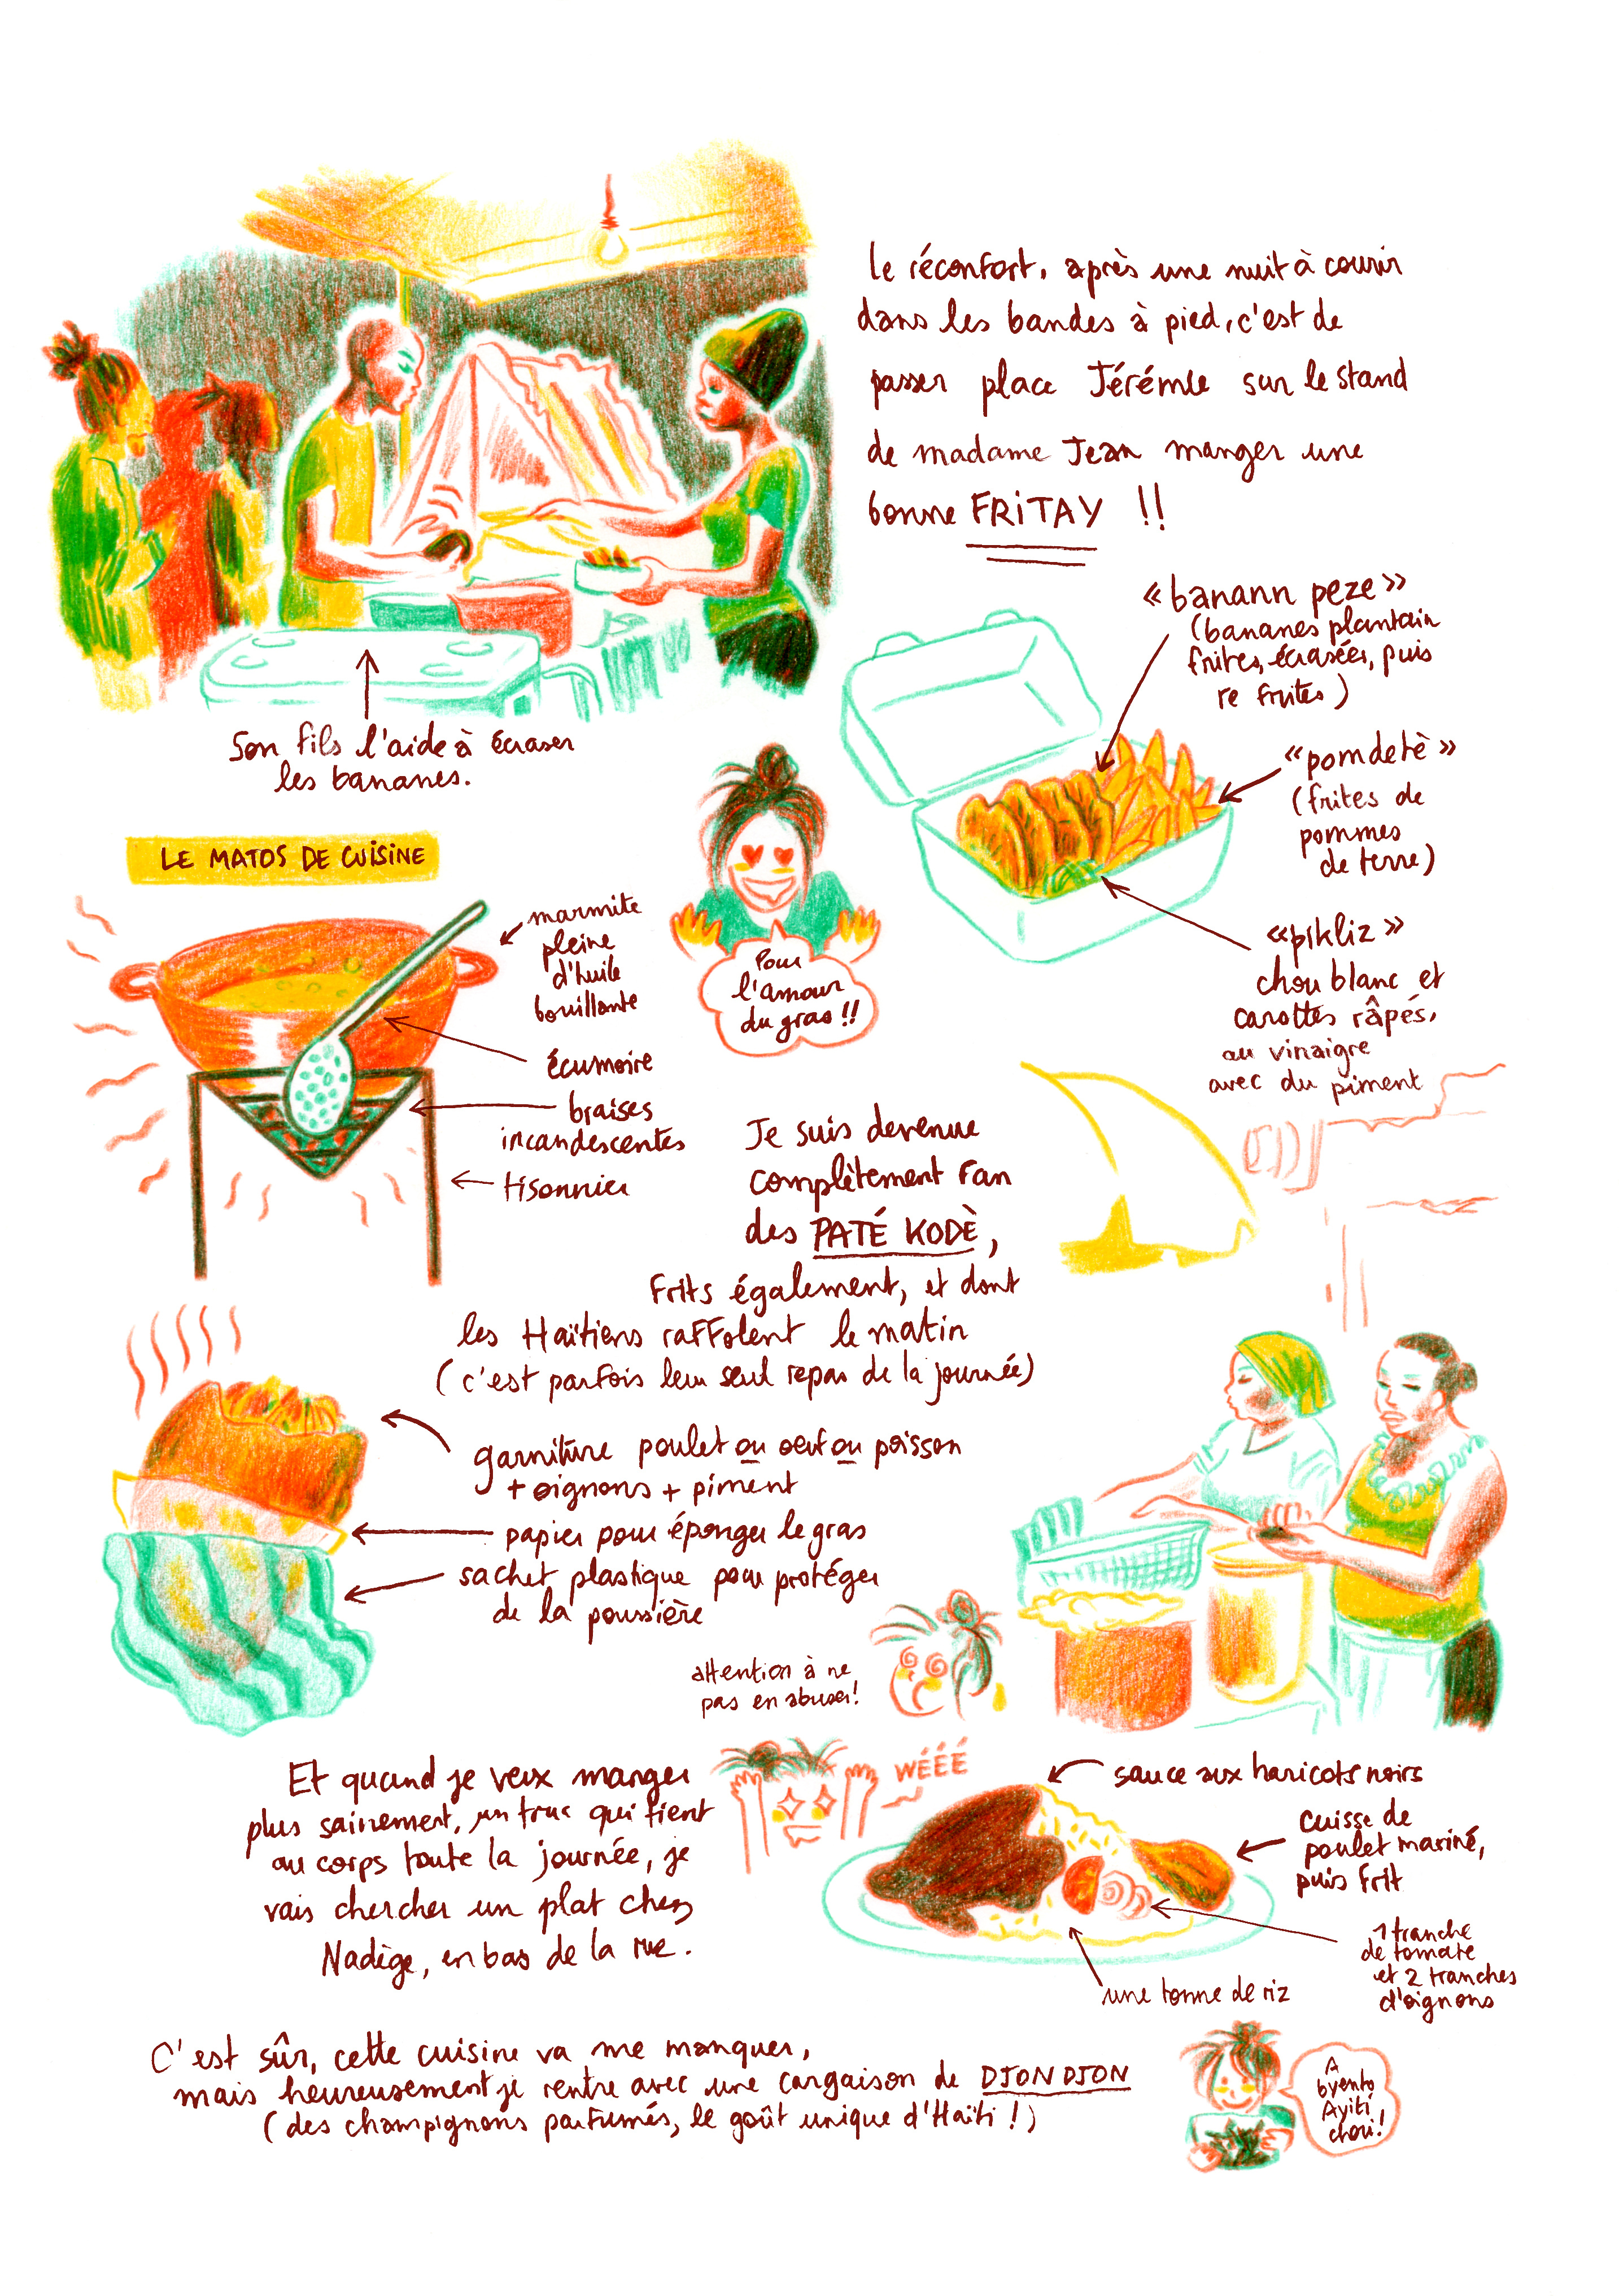 le réconfort, après une nuit à courir
dans les bandes à pied, c'est de
passer place Jérémie sur le stand
de madame Jean manger une
bonne FRITAY !!
Son fils l'aide à écraser
les bananes.
«banann peze»
(bananes plantain
frites, écrasées, puis
re frites)
«pomdetè»
(frites de
pommes
de terre)
«pikliz»
chou blanc et
carottes râpés,
au vinaigre
avec du piment
LE MATOS DE CUISINE
marmite
pleine
d'huile
bouillante
écumoire
braises
incandescentes
tisonnier
Pour
l'amour
du gras !!
Je suis devenue
complètement fan
des PATÉ KODÈ,
frits également, et dont
les Haïtiens raffolent le matin
(c'est parfois leur seul repas de la journée)
garniture poulet ou oeuf ou poisson
+ oignons + piment
papier pour éponger le gras
sachet plastique pour protéger
de la poussière
attention à ne
pas en abuser!
Et quand je veux manger
plus sainement, un truc qui tient
au corps toute la journée, je
vais chercher un plat chez
Nadège, en bas de la rue.
WÉÉÉ
sauce aux haricots noirs
cuisse de
poulet mariné,
puis frit
1 tranche
de tomate
et 2 tranches
d'oignons
une tonne de riz
C'est sûr, cette cuisine va me manquer,
mais heureusement je rentre avec une cargaison de DJON DJON
(des champignons parfumés, le goût unique d'Haïti !)
A
byento
Ayiti
cheri!